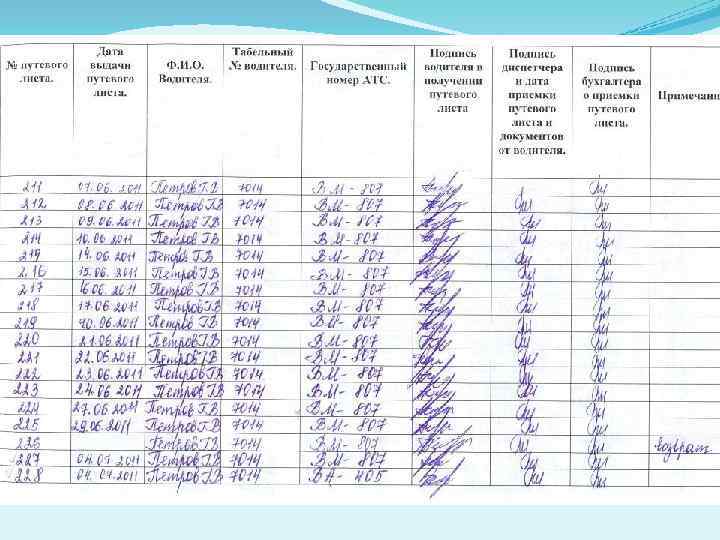 № путевого листа.
Дата выдачи путевого листа.
Ф.И.О. Водителя.
Табельный № водителя.
Государственный номер АТС.
Подпись водителя в получении путевого листа
Подпись диспетчера и дата приемки путевого листа и документов от водителя.
Подпись бухгалтера о приемки путевого листа.
Примечани
211 07.06.2011 Петров Г.В 7014 ВМ-807
212 08.06.2011 Петров Г.В 7014 ВМ-807
213 09.06.2011 Петров Г.В 7014 ВМ-807
214 10.06.2011 Петров Г.В 7014 ВМ-807
219 14.06.2011 Петров Г.В 7014 ВМ-807
216 15.06.2011 Петров Г.В 7014 ВМ-807
217 16.06.2011 Петров Г.В 7014 ВМ-807
218 17.06.2011 Петров Г.В 7014 ВМ-807
219 20.06.2011 Петров Г.В 7014 ВМ-807
220 21.06.2011 Петров Г.В 7014 ВМ-807
221 22.06.2011 Петров Г.В 7014 ВМ-807
222 23.06.2011 Петров Г.В 7014 ВМ-807
223 24.06.2011 Петров Г.В 7014 ВМ-807
224 27.06.2011 Петров Г.В 7014 ВМ-807
225 29.06.2011 Петров Г.В 7014 ВМ-807
226 Петров Г.В 7014 ВМ-807 возврат
227 04.07.2011 Петров Г.В 7014 ВМ-807
228 04.07.2011 Петров Г.В 7014 ВА-405